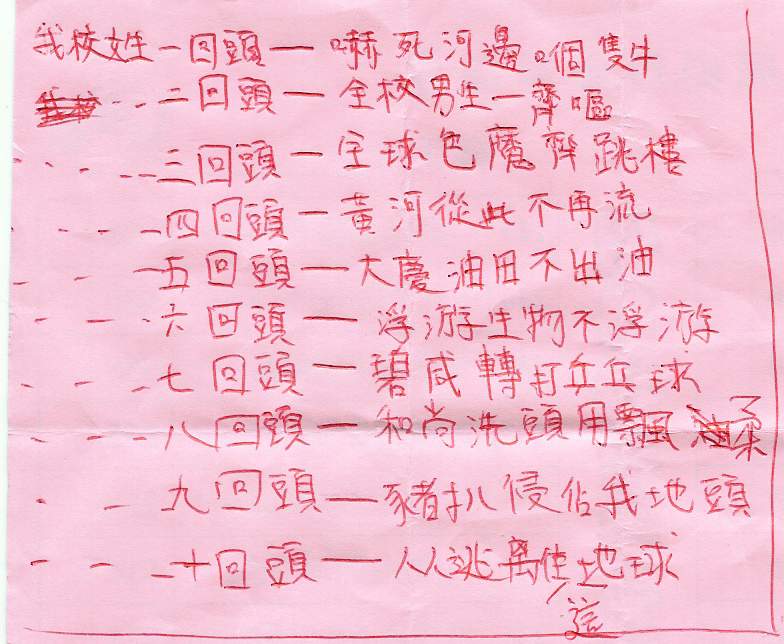 我校女生一回頭 — 嚇死河邊嗰隻牛
- - - 二回頭 — 全校男生一齊嘔
- - - - 三回頭 — 全球色魔齊跳樓
- - - - 四回頭 — 黃河從此不再流
- - - 五回頭 — 大慶油田不出油
- - - 六回頭 — 浮游生物不浮游
- - - 七回頭 — 碧咸轉打乒乓球
- - - 八回頭 — 和尚洗頭用飄柔
- - - 九回頭 — 豬扒侵佔我地頭
- - - 十回頭 — 人人逃離這地球